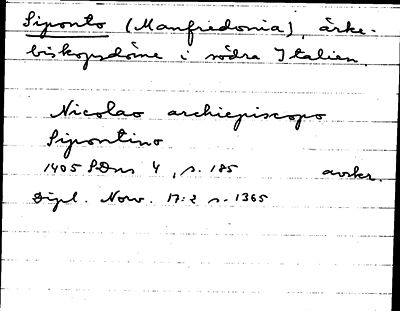 Siponto (Manfredonia), ärke-
biskopsdöme i södra Italien.
Nicolao archiepiscopo
Sipontino
1405 SDns 4, s. 185 avskr.
Dipl. Norv. 17:2 s. 1365